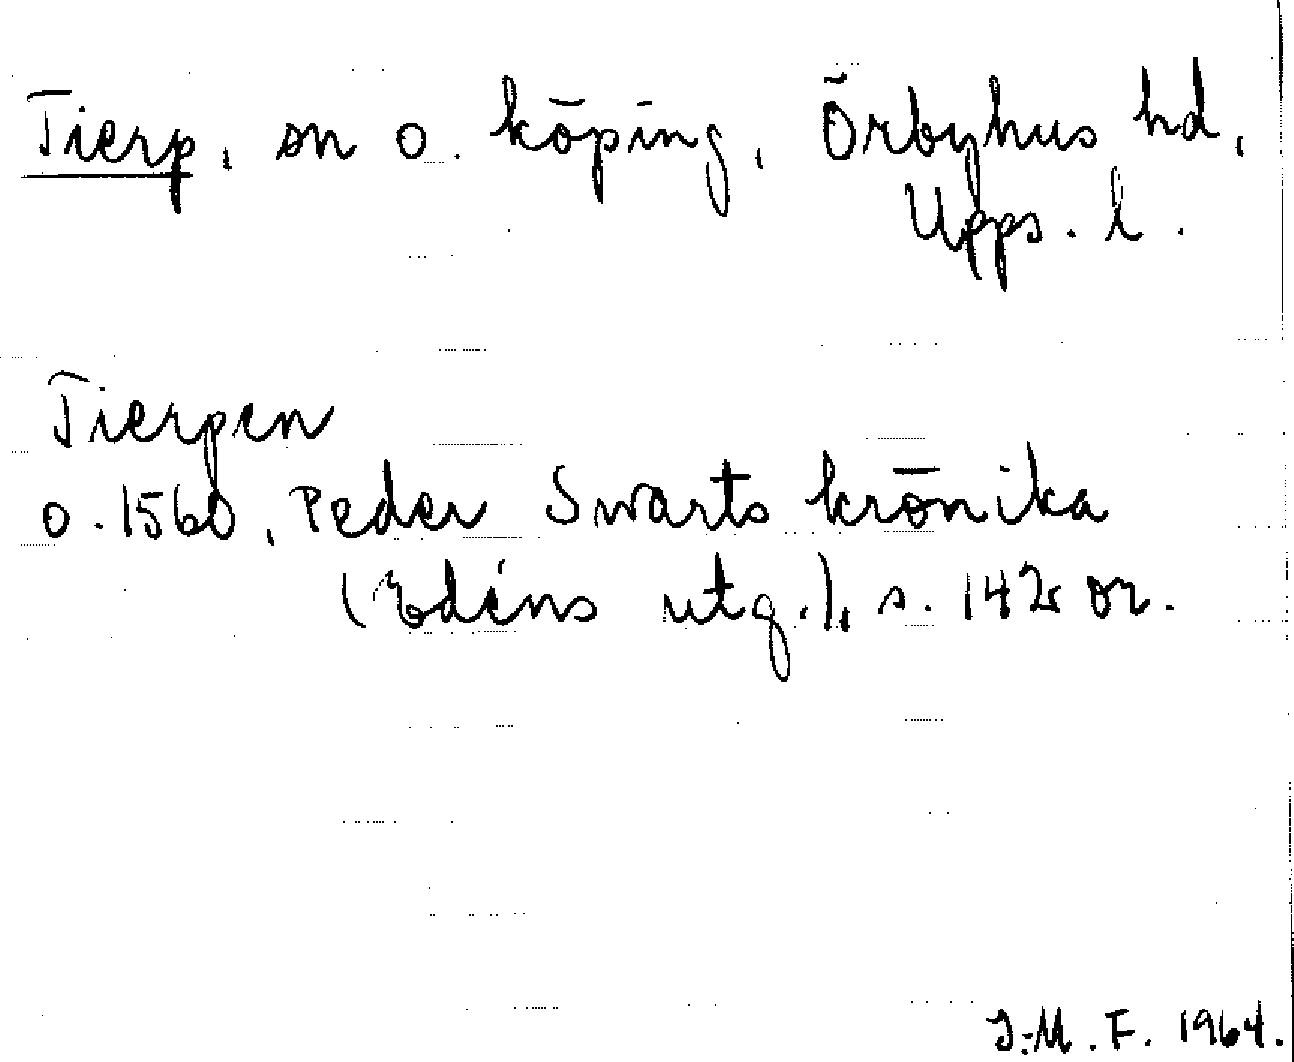 Tierp, sn o. köping, Örbyhus hd,
Upps. l.
Tierpen
o. 1560, Peder Swarts krönika
(Edéns utg.), s. 142 or.
J:M.F. 1964.